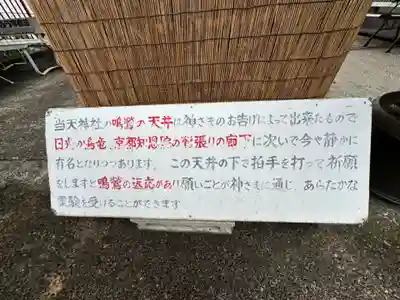 当天神社の鳴鶯の天井は神さまのお告げによって出来たもので
日光の鳴竜、京都知恩院の鶯張りの廊下に次いで今や静かに
有名となりつつあります。この天井の下で拍手を打って祈願
をしますと鳴鶯の返応があり願いごとが神さまに通じ、あらたかな
霊験を受けることができます